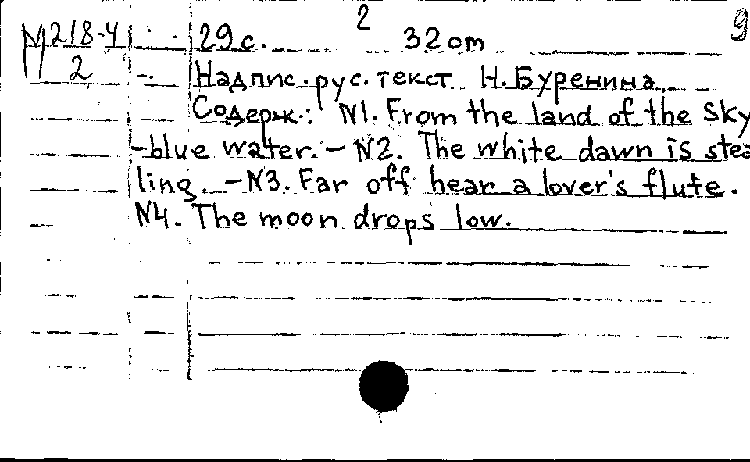 2 9
М218-4 29 с. 32 см
2 Надпис. рус. текст Н. Буренина
Содерж.: N1. From the land of the sky
-blue water. - N2. The white dawn is stea
ling. - N3. Far off hear a lover's flute.
N4. The moon drops low.